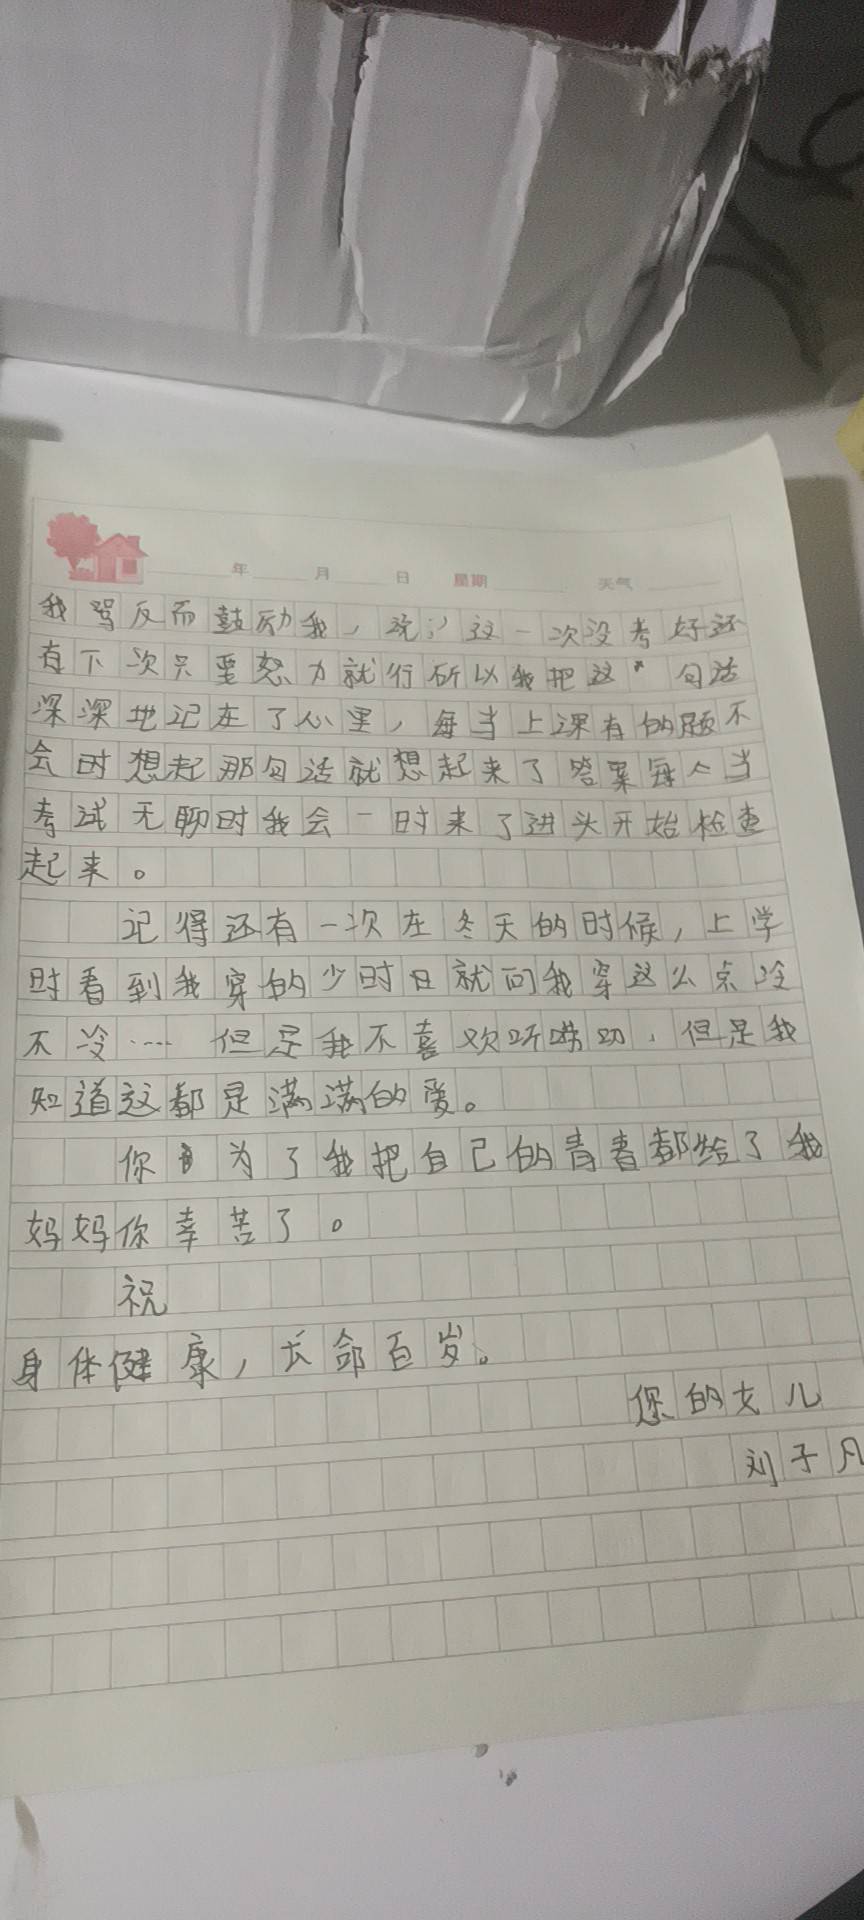 年 月 日 星期 天气
我骂反而鼓励我，说：这一次没考好还
有下次只要怒力就行所以我把这句话
深深地记在了心里，每当上课有的题不
会时想起那句话就想起来了答案每人当
考试无聊时我会一时来了进头开始检查
起来。
记得还有一次在冬天的时候，上学
时看到我穿的少时日就问我穿这么点冷
不冷…… 但是我不喜欢听唠叨，但是我
知道这都是满满的爱。
你为了我把自己的青春都给了我
妈妈你幸苦了。
祝
身体健康，长命百岁。
您的女儿
刘子凡